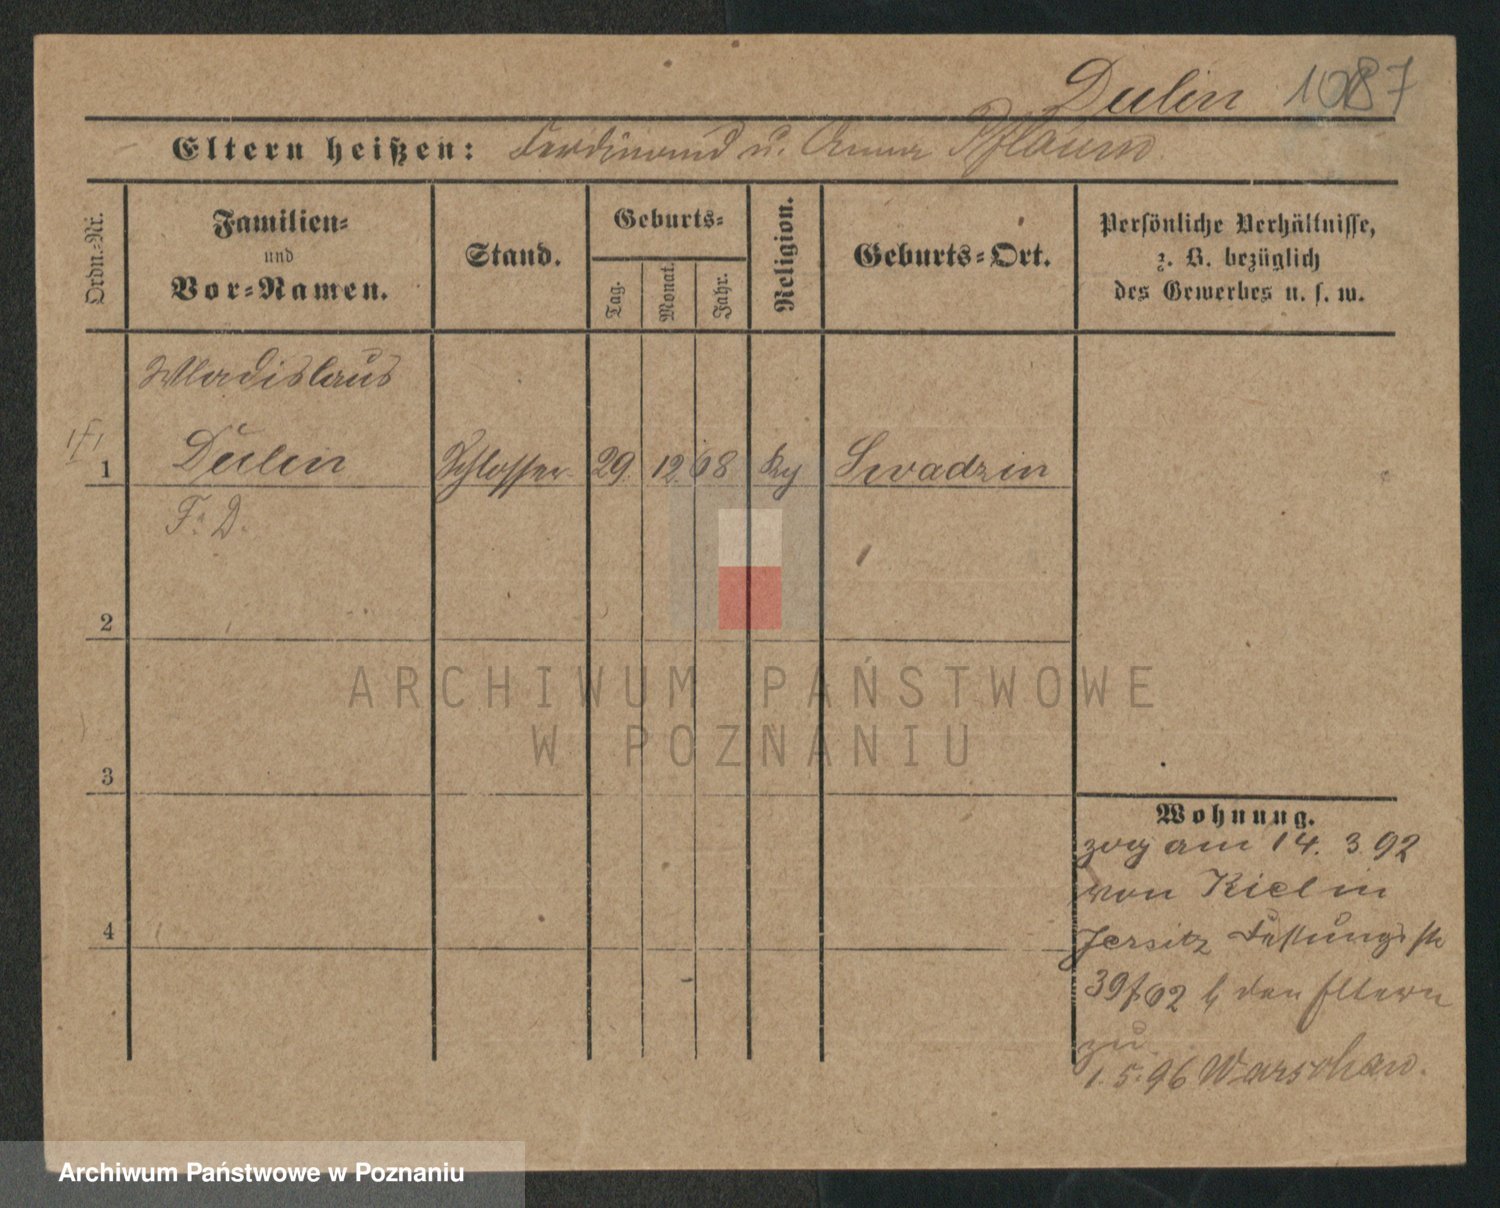 Dulin 1087
Eltern heißen: Ferdinand u. Anna Pflaum
Ordn.-Nr.
Familien-
und
Vor-Namen.
Stand.
Geburts-
Tag.
Monat.
Jahr.
Religion.
Geburts-Ort.
Persönliche Verhältnisse,
z. B. bezüglich
des Gewerbes u. s. w.
Wladislaus
1 Dulin Schlosser 29. 12. 68 Swadzin
F. D.
2
3
4
Wohnung.
zog am 14. 3. 92
von Kiel in
Jersitz Festungsstr
den Eltern
zu
1. 5. 96 Warschau.
ARCHIWUM PAŃSTWOWE
W POZNANIU
Archiwum Państwowe w Poznaniu